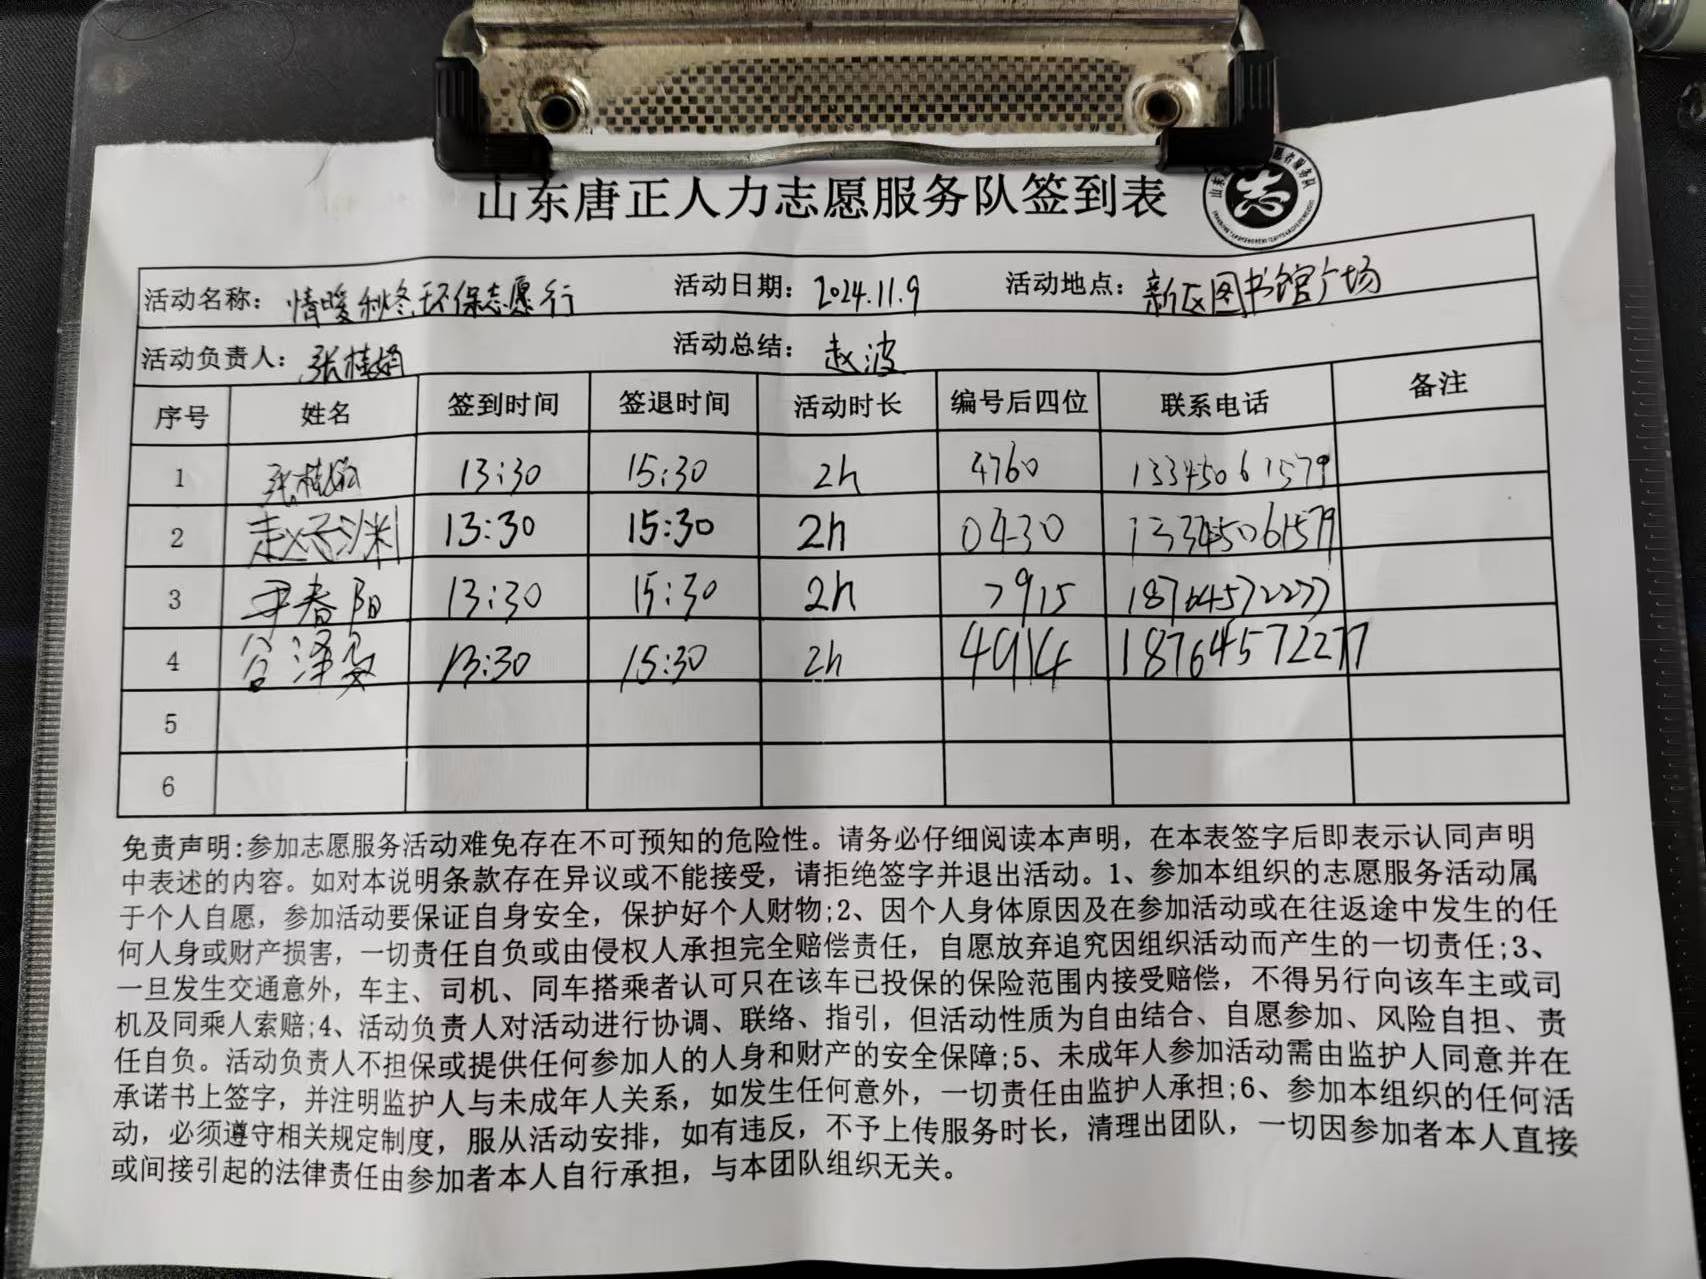 山东唐正人力志愿服务队签到表
志
活动名称: 情暖秋冬环保志愿行 活动日期: 2024.11.9 活动地点: 新区图书馆广场
活动负责人: 张桂娟 活动总结: 赵波
序号 姓名 签到时间 签退时间 活动时长 编号后四位 联系电话 备注
1 张桂娟 13:30 15:30 2h 4760 13345061579
2 赵 13:30 15:30 2h 0430 13345061579
3 春阳 13:30 15:30 2h 7915 18764572277
4 谷泽 13:30 15:30 2h 4914 18764572277
5
6
免责声明:参加志愿服务活动难免存在不可预知的危险性。请务必仔细阅读本声明，在本表签字后即表示认同声明
中表述的内容。如对本说明条款存在异议或不能接受，请拒绝签字并退出活动。1、参加本组织的志愿服务活动属
于个人自愿，参加活动要保证自身安全，保护好个人财物;2、因个人身体原因及在参加活动或在往返途中发生的任
何人身或财产损害，一切责任自负或由侵权人承担完全赔偿责任，自愿放弃追究因组织活动而产生的一切责任;3、
一旦发生交通意外，车主、司机、同车搭乘者认可只在该车已投保的保险范围内接受赔偿，不得另行向该车主或司
机及同乘人索赔;4、活动负责人对活动进行协调、联络、指引，但活动性质为自由结合、自愿参加、风险自担、责
任自负。活动负责人不担保或提供任何参加人的人身和财产的安全保障;5、未成年人参加活动需由监护人同意并在
承诺书上签字，并注明监护人与未成年人关系，如发生任何意外，一切责任由监护人承担;6、参加本组织的任何活
动，必须遵守相关规定制度，服从活动安排，如有违反，不予上传服务时长，清理出团队，一切因参加者本人直接
或间接引起的法律责任由参加者本人自行承担，与本团队组织无关。